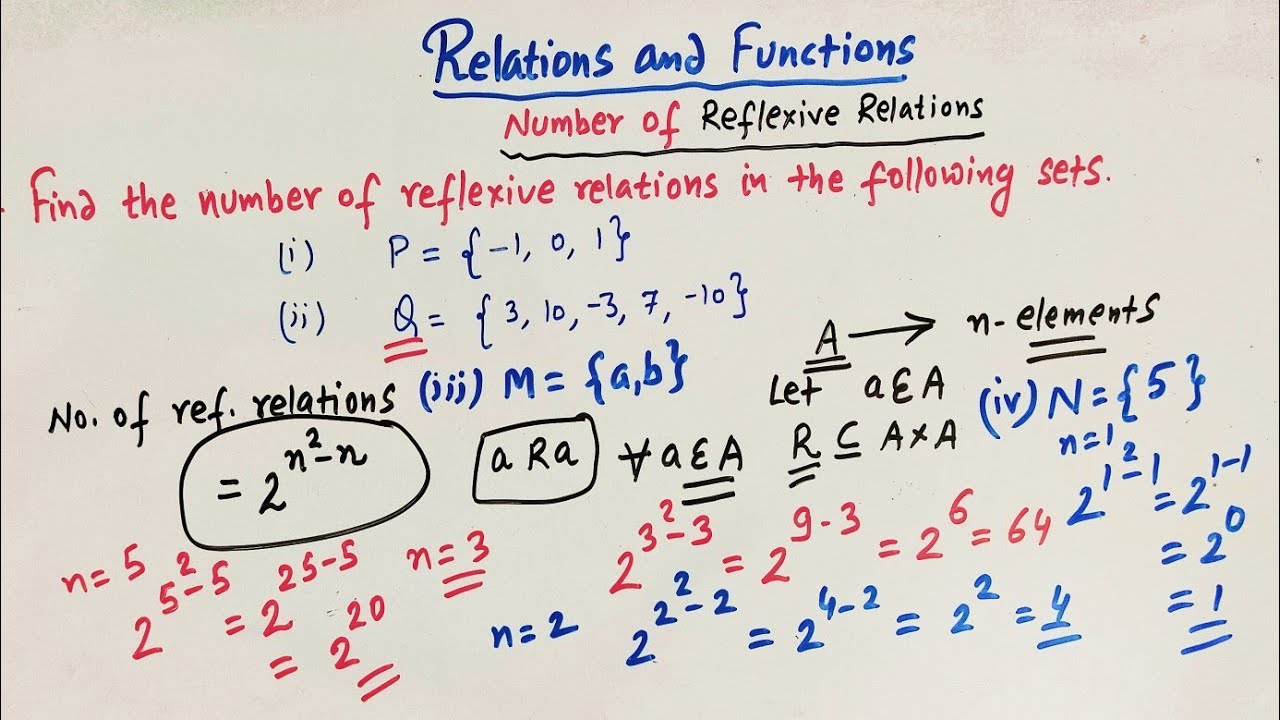 Relations and Functions
Number of Reflexive Relations
Find the number of reflexive relations in the following sets.
(i) P = {-1, 0, 1}
(ii) Q = {3, 10, -3, 7, -10}
A → n-elements
(iii) M = {a,b}
Let a ε A
(iv) N = {5}
No. of ref. relations
= 2^(n²-n)
a R a ∀ a ε A
R ⊆ A × A
n=1
2^(1²-1) = 2^(1-1)
= 2^0
= 1
n = 3
2^(3²-3) = 2^(9-3) = 2^6 = 64
n = 5
2^(5²-5) = 2^(25-5)
= 2^20
n = 2
2^(2²-2) = 2^(4-2) = 2² = 4